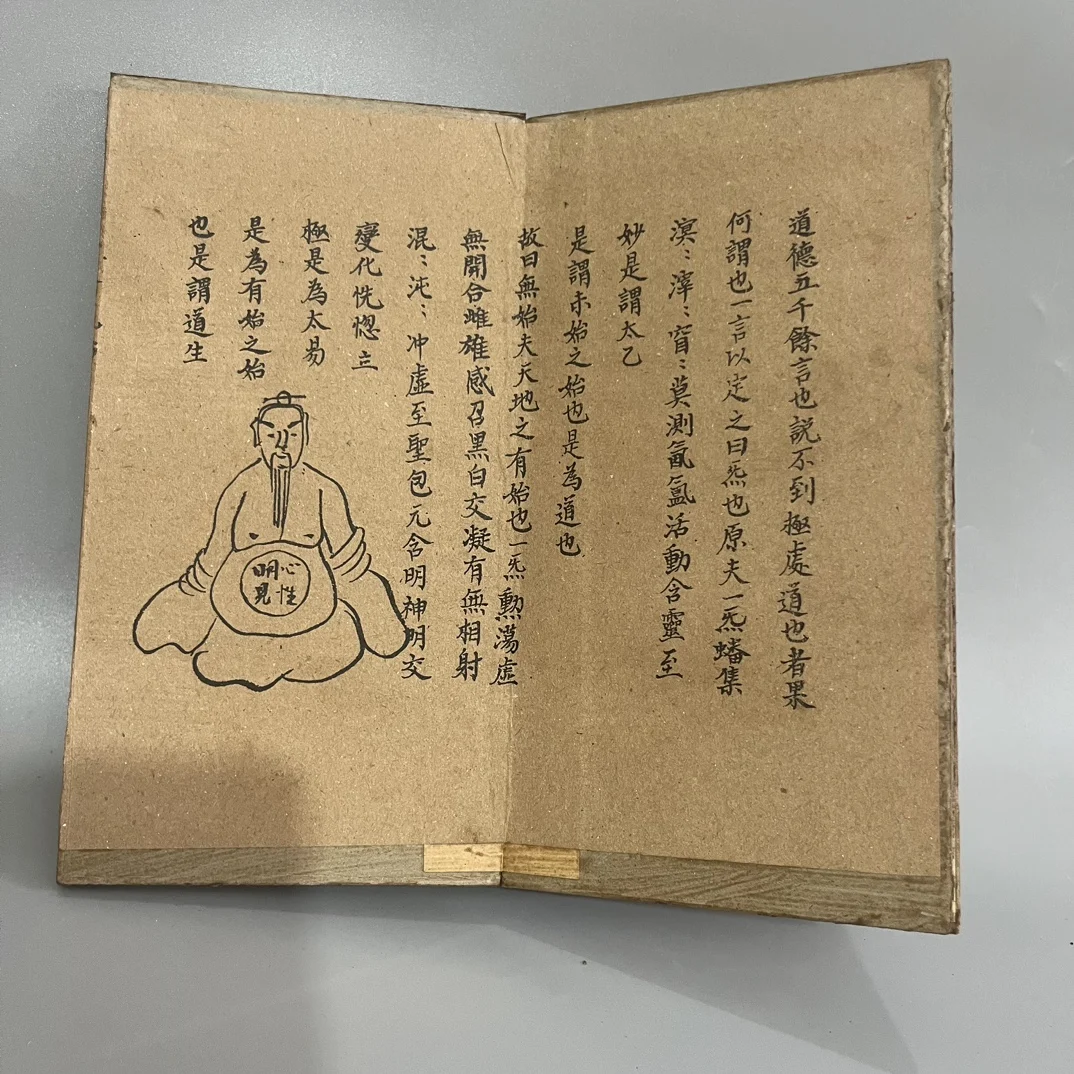 道德五千餘言也説不到極處道也者果
何謂也一言以定之曰炁也原夫一炁蟠集
溟〻滓〻窅〻莫測氤氳活動含靈至
妙是謂太乙
是謂未始之始也是為道也
故曰無始夫天地之有始也一炁動蕩虛
無開合雌雄感召黑白交凝有無相射
混〻沌〻冲虛至聖包元含明神明交
變化恍惚立
極是為太易
是為有始之始
也是謂道生
心性
明見